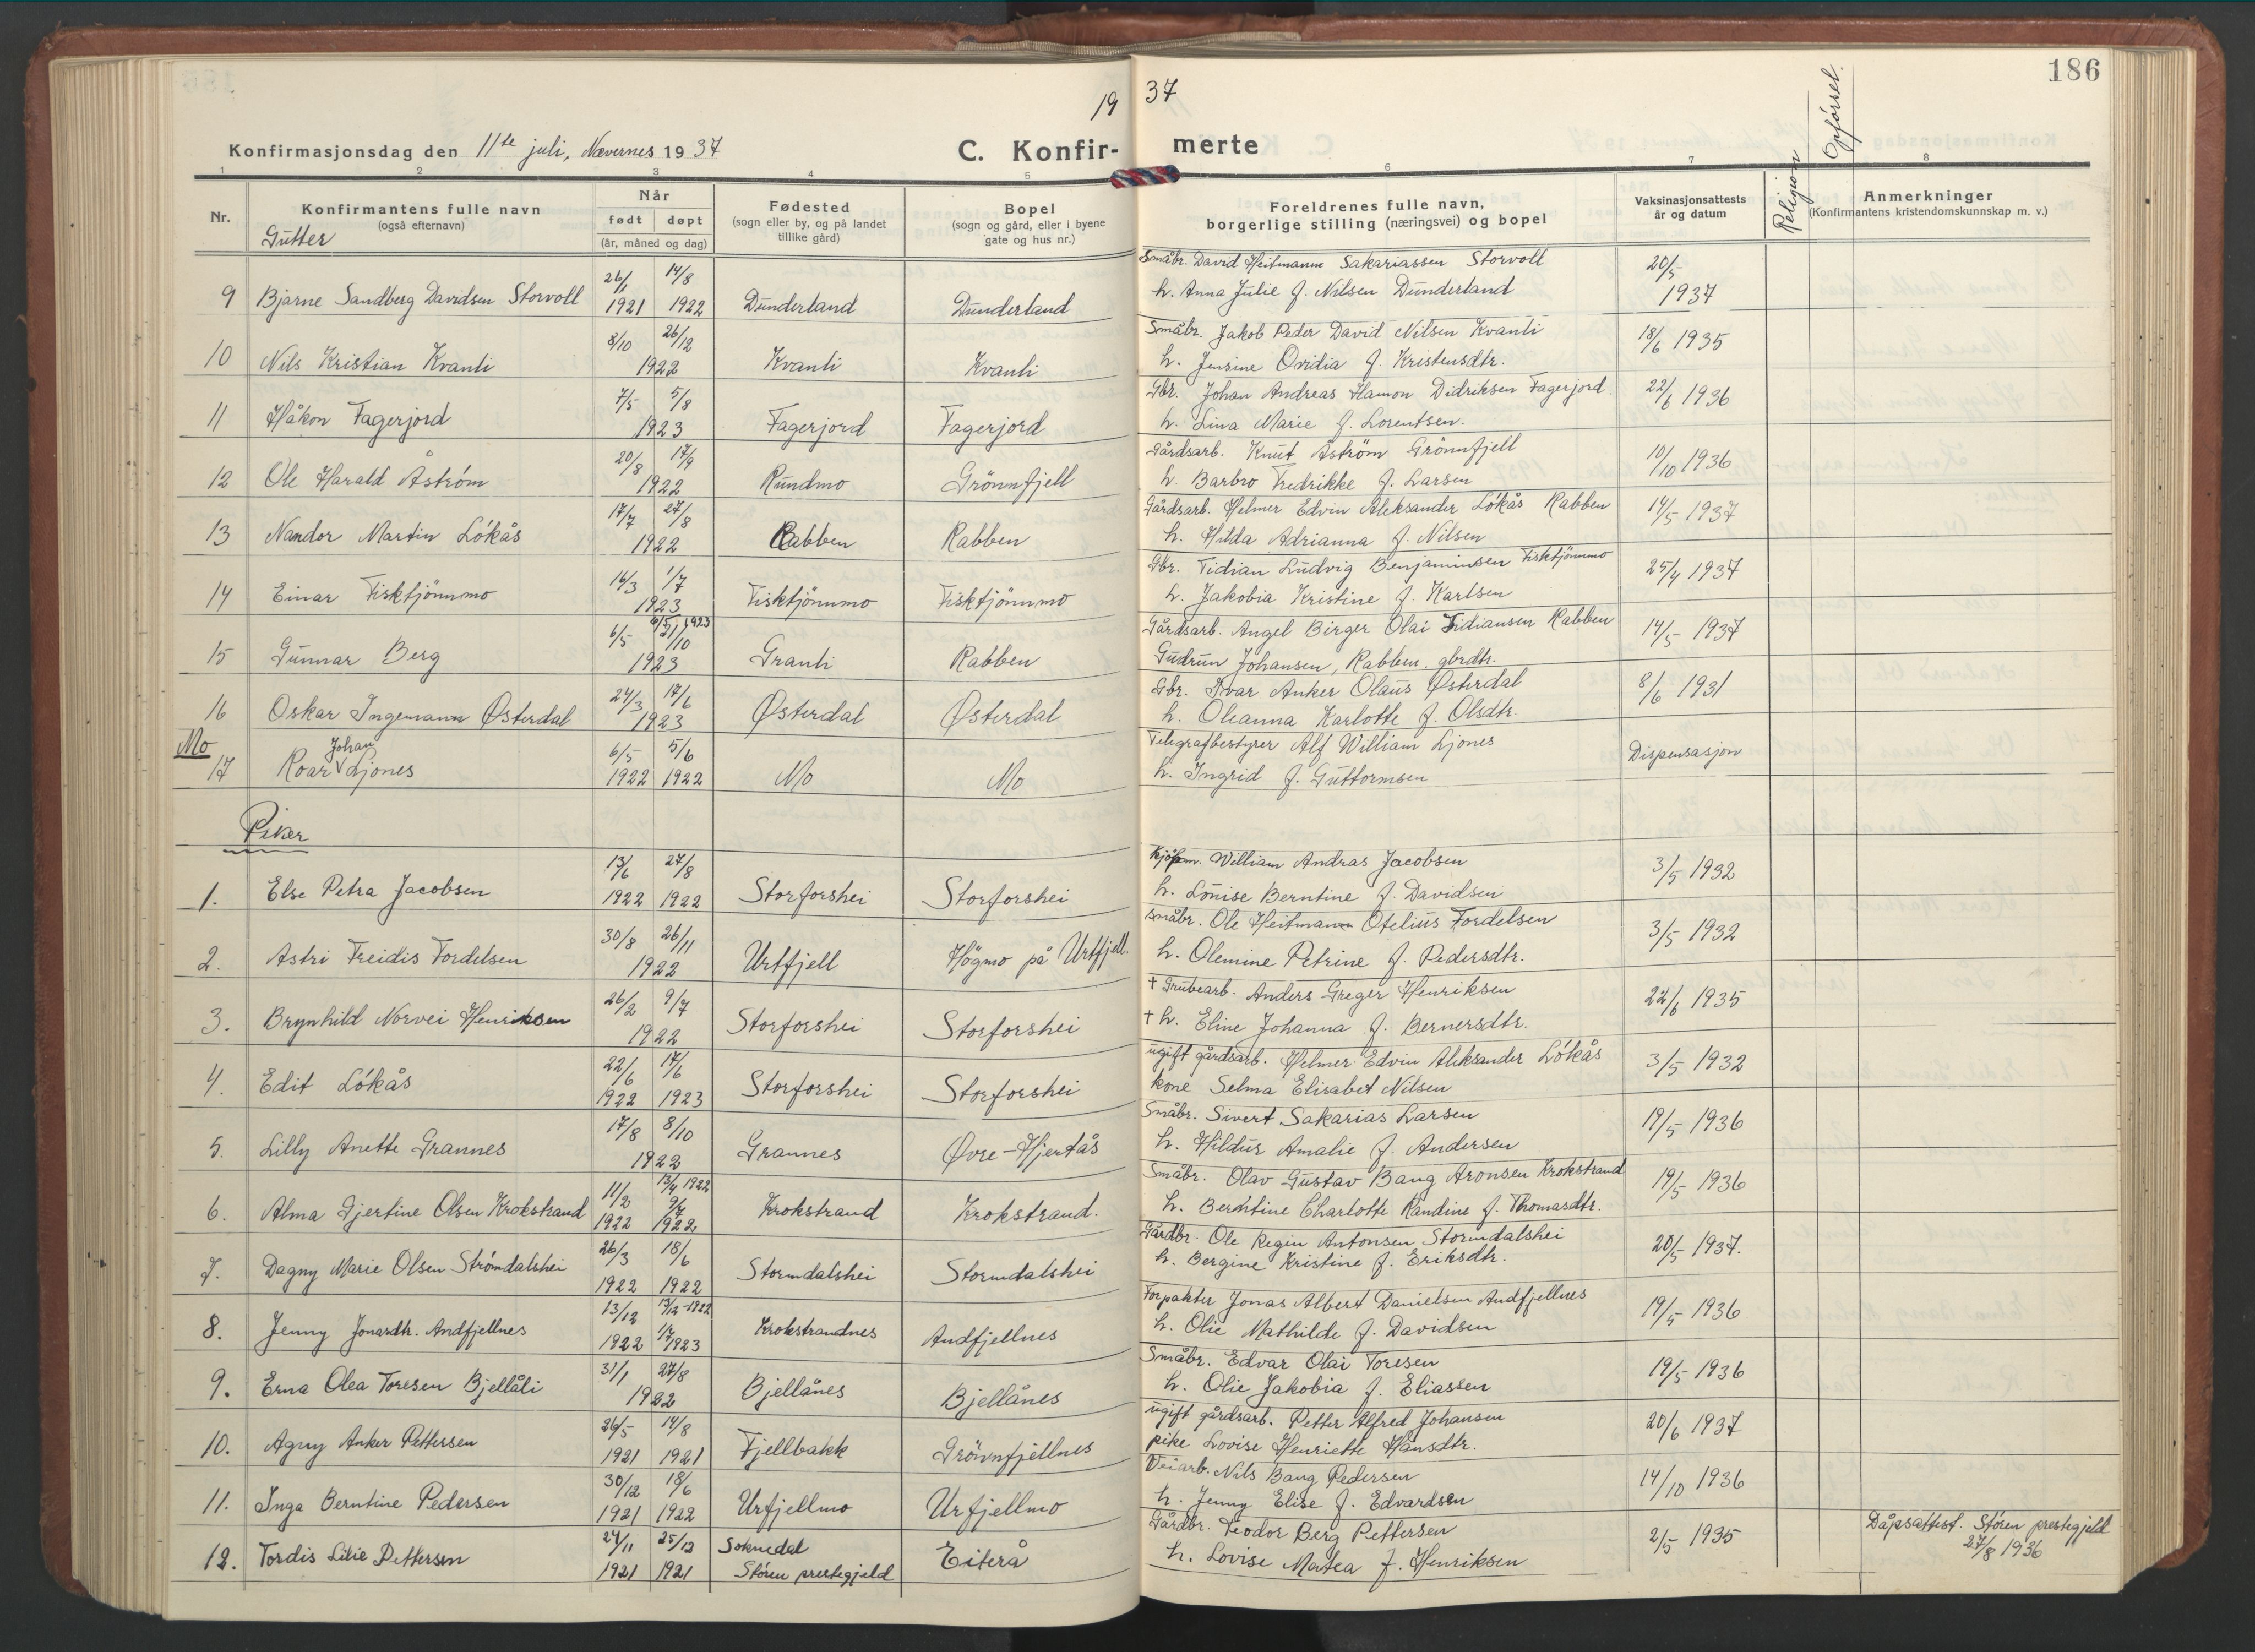 19 37
186
Konfirmasjonsdag den 11te juli, Nævernes 1937
C. Konfir- merte
Religion
Opførsel.
1 2 3 4 5 6 7 8
Nr.
Konfirmantens fulle navn
(også efternavn)
Gutter
Når
født døpt
(år, måned og dag)
Fødested
(sogn eller by, og på landet
tillike gård)
Bopel
(sogn og gård, eller i byene
gate og hus nr.)
Foreldrenes fulle navn,
borgerlige stilling (næringsvei) og bopel
Vaksinasjonsattests
år og datum
Anmerkninger
(Konfirmantens kristendomskunnskap m. v.)
26/1 14/8 Småbr. David Heitmann Sakariassen Storvoll 20/5
9 Bjarne Sandberg Davidsen Storvoll 1921 1922 Dunderland Dunderland h. Anna Julie f. Nilsen Dunderland 1937
8/10 26/12 Småbr. Jakob Peder David Nilsen Kvanli 18/6 1935
10 Nils Kristian Kvanli 1922 Kvanli Kvanli h. Jensine Ovidia f. Kristensdtr.
7/5 5/8 Gbr. Johan Andreas Hamon Didriksen Fagerjord 22/6 1936
11 Håkon Fagerjord 1923 Fagerjord Fagerjord h. Lina Marie f. Lorentsen.
20/8 17/9 Gårdsarb. Knut Åström Grönnfjell 10/10 1936
12 Ole Harald Åström 1922 Rundmo Grönnfjell h. Barbro Fredrikke f. Larsen
17/7 27/8 Gårdsarb. Helmer Edvin Aleksander Lökås Rabben 14/5 1937
13 Nandor Martin Lökås 1922 Rabben Rabben h. Hilda Adrianna f. Nilsen
16/3 1/7 Gbr. Tidian Ludvig Benjaminsen Fisktjönnmo 25/4 1937
14 Einar Fisktjönnmo 1923 Fisktjönnmo Fisktjönnmo h. Jakobia Kristine f. Karlsen
6/5 6/5 1923 21/10 Gårdsarb. Angel Birger Olai Tidiansen Rabben 14/5 1937
15 Gunnar Berg 1923 Granli Rabben Gudrun Johansen, Rabben. gbrdtr.
24/3 17/6 Gbr. Ivar Anker Olaus Østerdal 8/6 1931
16 Oskar Ingemann Østerdal 1923 Østerdal Østerdal h. Oleanna Karlotte f. Olsdtr.
Mo Johan 6/5 5/6 Telegrafbestyrer Alf William Ljones Dispensasjon
17 Roar Ljones 1922 1922 Mo Mo h. Ingrid f. Guttormsen
Piker
13/6 27/8 Kjøpm. William Andras Jacobsen 3/5 1932
1. Else Petra Jacobsen 1922 1922 Storforshei Storforshei h. Louise Berntine f. Davidsen
30/8 26/11 småbr. Ole Heitmann Otelius Fordelsen 3/5 1932
2. Astri Freidis Fordelsen 1922 Urtfjell Högmo på Urtfjell. h. Olemine Petrine f. Pedersdtr.
26/2 9/7 + Grubearb. Anders Greger Henriksen 22/6 1935
3. Brynhild Norvei Henriksen 1922 Storforshei Storforshei + h. Eline Johanna f. Bernersdtr.
22/6 17/6 ugift gårdsarb. Helmer Edvin Aleksander Lökås 3/5 1932
4. Edit Lökås 1922 1923 Storforshei Storforshei kone Selma Elisabet Nilsen
17/8 8/10 Småbr. Sivert Sakarias Larsen 19/5 1936
5. Lilly Anette Grannes 1922 Grannes Øvre-Hjertås h. Hildus Amalie f. Andersen
11/2 13/4 1922 9/7 Småbr. Olav Gustav Bang Aronsen Krokstrand 19/5 1936
6. Alma Gjertine Olsen Krokstrand 1922 1922 Krokstrand Krokstrand. h. Berntine Charlotte Randine f. Thomasdtr.
26/3 18/6 Gårdbr. Ole Regin Antonsen Stormdalshei 20/5 1937.
7. Dagny Marie Olsen Strömdalshei 1922 1922 Stormdalshei Stormdalshei h. Bergine Kristine f. Eriksdtr.
13/12 13/12-1922 Forpakter Jonas Albert Danielsen Andfjellnes 19/5 1936
8. Jenny Jonasdtr. Andfjellnes 1922 1/7 1923 Krokstrandnes Andfjellnes h. Olie Mathilde f. Davidsen
31/1 27/8 Småbr. Edvar Olai Toresen 19/5 1936
9. Erna Olea Toresen Bjellåli 1922 Bjellånes Bjellånes h. Olie Jakobia f. Eliassen
26/5 14/8 ugift gårdsarb. Petter Alfred Johansen 20/6 1937
10. Agny Anker Pettersen 1921 1921 Fjellbakk Grönnfjellnes pike Lovise Henriette Hansdtr.
30/12 18/6 Veiarb. Nils Bang Pedersen 14/10 1936
11. Inga Berntine Pedersen 1921 1922 Urfjellmo Urfjellmo h. Jenny Elise f. Edvardsen
24/11 25/12 Soknedal Gårdbr. Teodor Berg Pettersen 2/5 1935 Dåpsattest. Stören prestegjeld
12. Tordis Lilie Pettersen 1921 1921 Stören prestegjeld Eiterå h. Lovise Matea f. Henriksen 27/8 1936